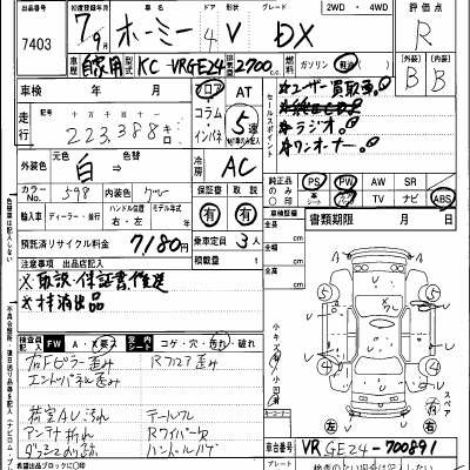 出品店番 初度登録年月 車名 ドア 形状 グレード 2WD・4WD 評価点
7403 7年9月 ホーミー 4 V DX R
車歴 自家用 型式 KC-VRGE24 排気量 2700cc 燃料 ガソリン 軽油 外装 B 内装 B
車検 年 月 フロア AT
コラム
インパネ
5速
走行 記号 十 万 千 百 十
223,388 キロ
セールスポイント
*ユーザー買取車。
*ラジオ。
*ワンオーナー。
外装色 元色 白 色替 冷房 AC
カラーNo. 598 内装色 グレー 保証書 取説
純正品のみ○印 PS PW AW SR
TV ナビ ABS
輸入車 ディーラー・並行 ハンドル位置 右・左 モデル年式 有 有
車検整備 書類期限 月 日
預託済リサイクル料金 7,180円 乗車定員 3人
注意事項 出品店記入 積載量 t
※取説・保証書後送
※抹消出品
全長 cm
全幅 cm
全高 cm
検査員記入 FW A・X要 室内シート コゲ・穴・汚れ・破れ
右Fピラー歪み Rフロア歪み
エンドパネル歪み
荷室AU汚れ テールワレ
アンテナ折れ Rワイパー欠
ハンドルハゲ
小キズ 小凹
スペア
左 右
希望出品ブロックに○印 車台番号 VRGE24-700891
グレード